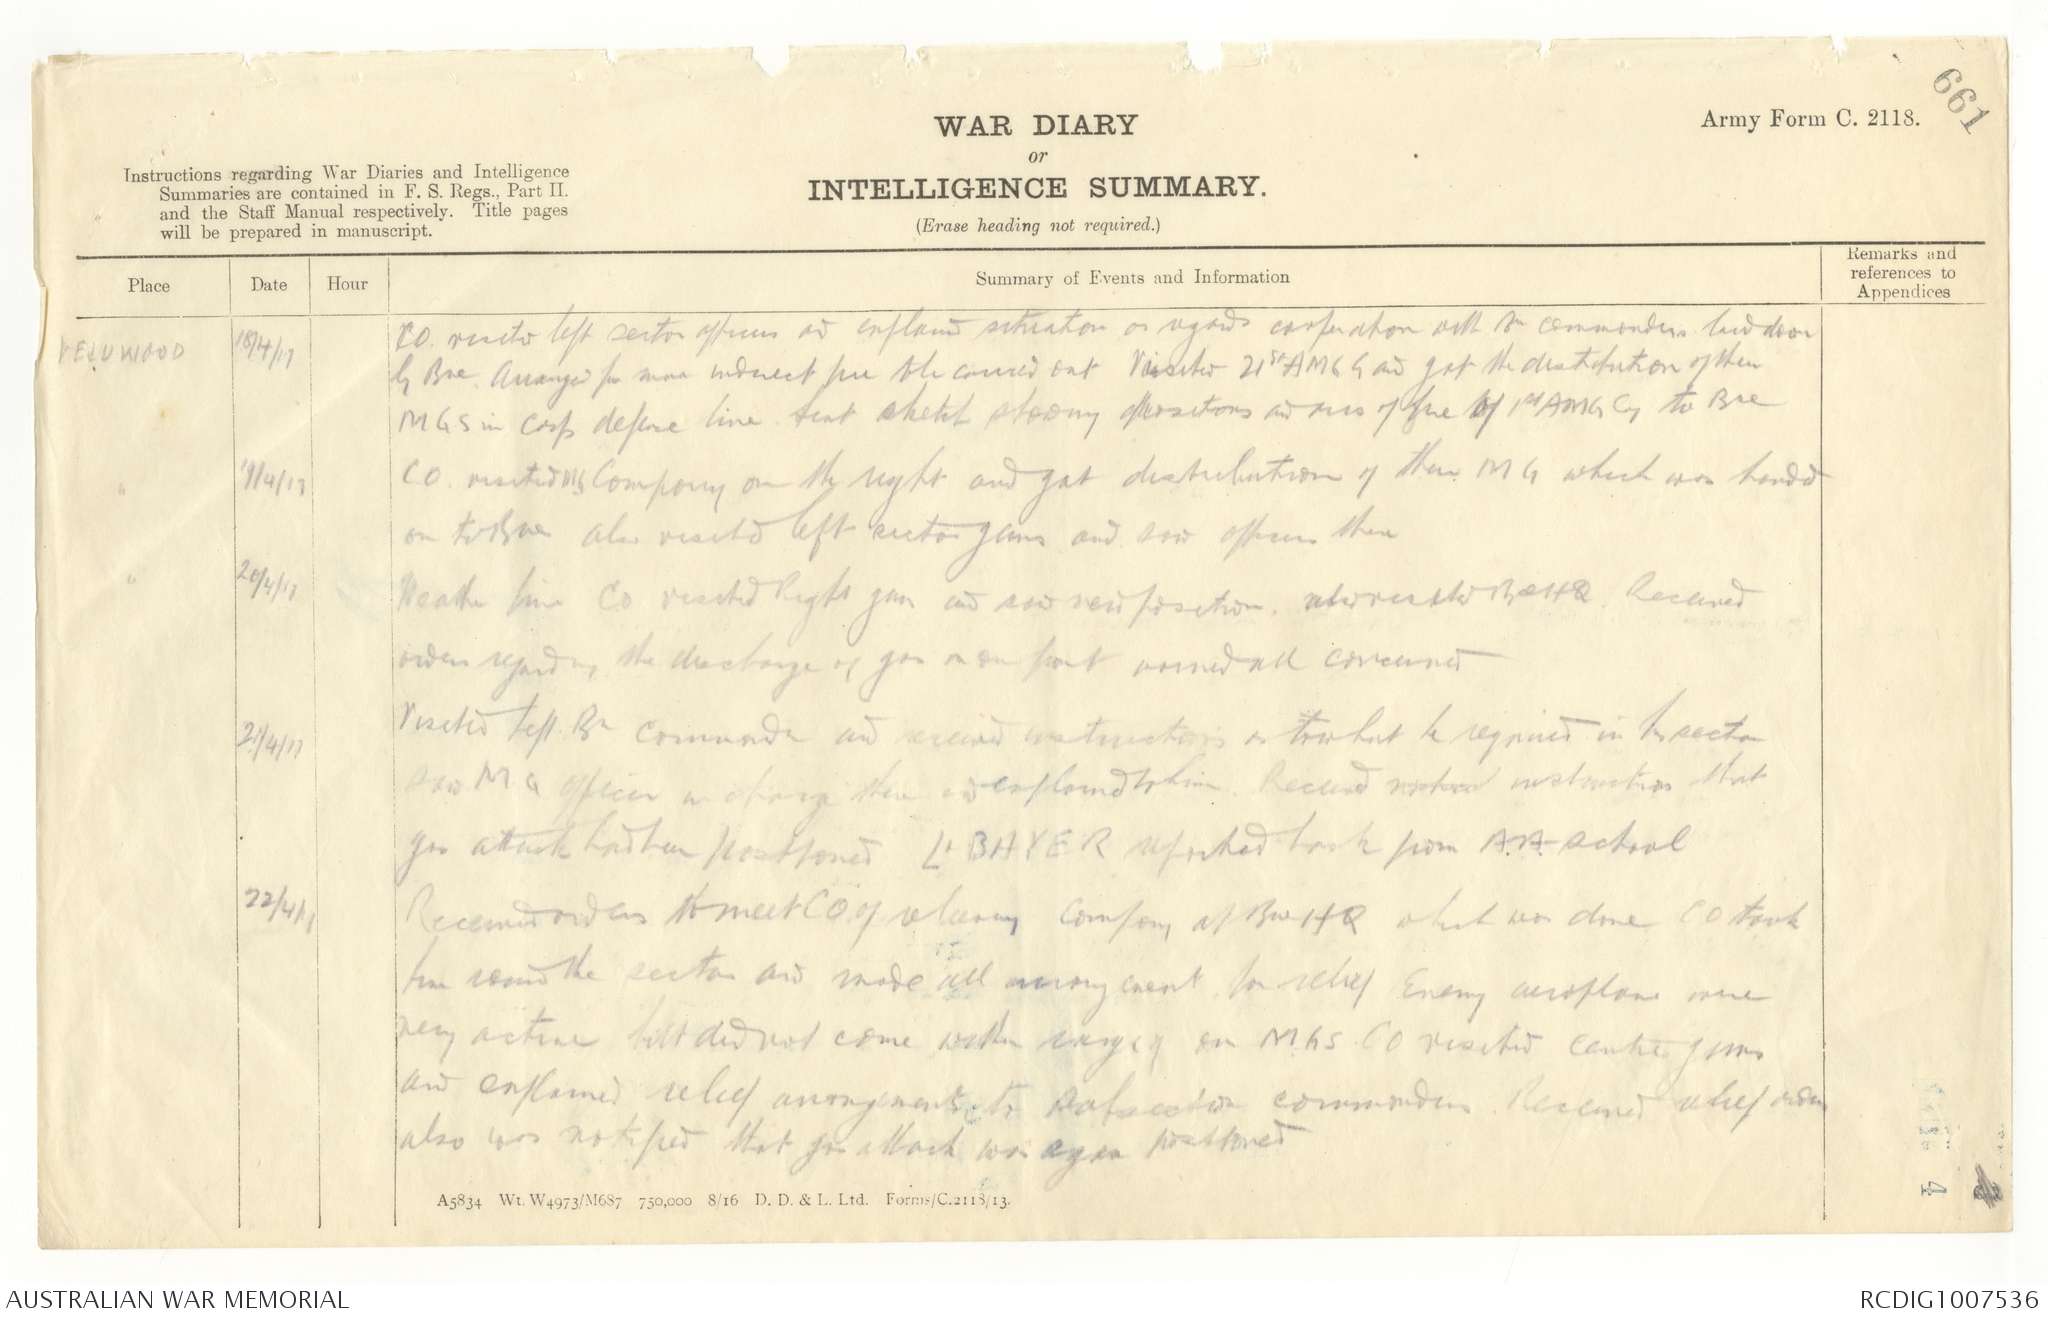 661
Army Form C. 2118.
WAR DIARY
or
INTELLIGENCE SUMMARY.
(Erase heading not required.)
Instructions regarding War Diaries and Intelligence
Summaries are contained in F. S. Regs., Part II.
and the Staff Manual respectively. Title pages
will be prepared in manuscript.
Place
Date
Hour
Summary of Events and Information
Remarks and
references to
Appendices
18/4/17
CO. visited left sector officers and explained situation as regards cooperation with Bn commanders laid down
by Bde. Arranged for more indirect fire to be carried out Visited 21st AMGC and got the distribution of their
MGS in Corps defence line. Sent sketch showing dispositions and arcs of fire of 1st AMG Coy to Bde
" 19/4/17
CO. visited MG Company on the right and got distribution of their MG which was handed
on to Bde also visited left sector guns and saw officers there
" 20/4/17
Weather fine CO visited Right guns and saw new position. also visited Bde HQ. Received
orders regarding the discharge of gas on our front warned all concerned
21/4/17
Visited left Bn commander and received instructions as to what he required in his sector
saw MG officer in charge there and explained to him. Received instructions that
gas attack had been postponed Lt BAYER reported back from A.A. school
22/4/17
Received orders to meet CO of relieving Company at Bde HQ which was done CO took
him round the sector and made all arrangement for relief Enemy aeroplane were
very active but did not come within range of our MGS. CO visited centre guns
and explained relief arrangements to subsection commanders. Received relief orders
also was notified that gas attack was again postponed
A5834 Wt. W4973/M687 750,000 8/16 D. D. & L. Ltd. Forms/C.2118/13.
4
AUSTRALIAN WAR MEMORIAL
RCDIG1007536